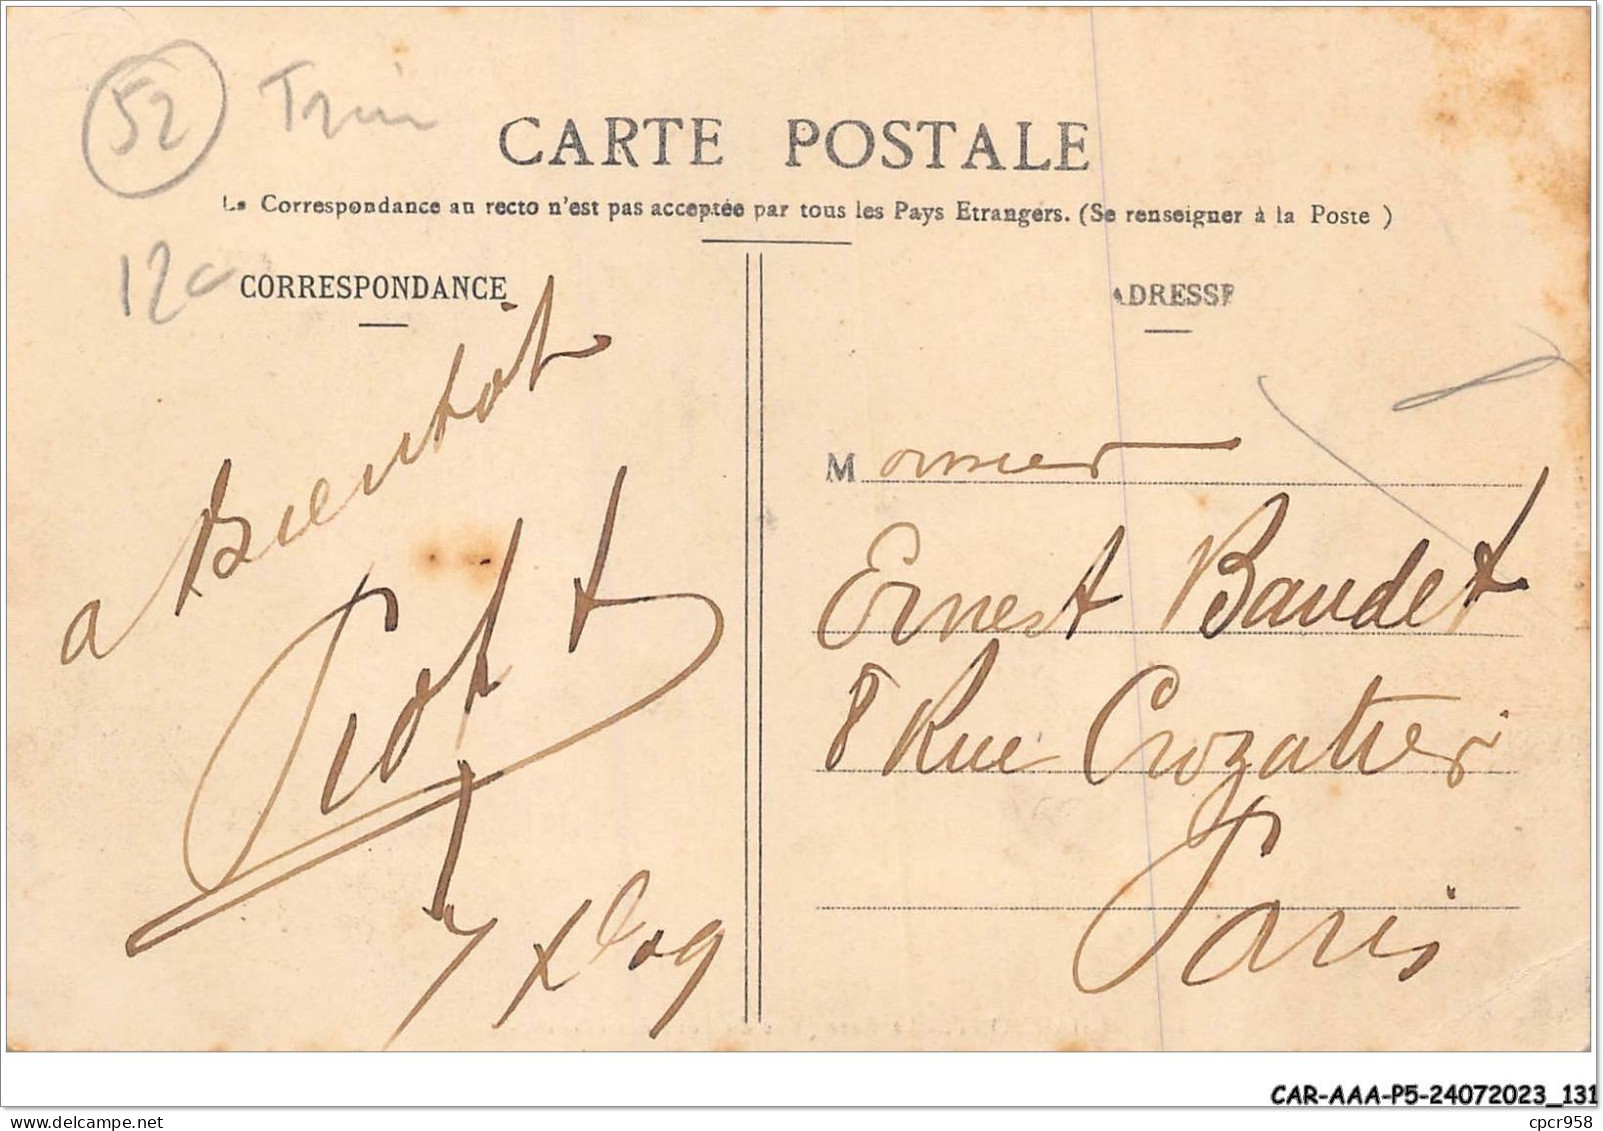 52 Train
CARTE POSTALE
La Correspondance au recto n'est pas acceptée par tous les Pays Etrangers. (Se renseigner à la Poste )
12c
CORRESPONDANCE
ADRESSE
a Bientot
Piot
7 Xbre 09
Monsieur
Ernest Baudet
8 Rue Crozatier
Paris
CAR-AAA-P5-24072023_131
www.delcampe.net
cpcr958